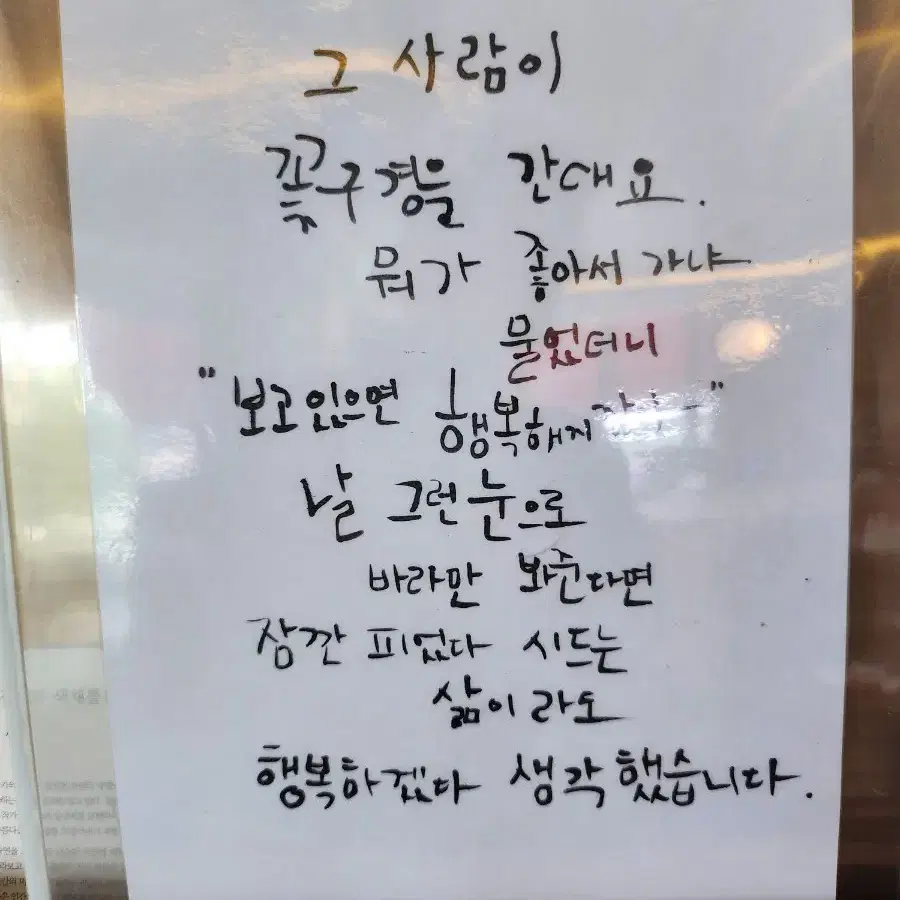 그 사람이
꽃구경을 간대요.
뭐가 좋아서 가냐
물었더니
"보고있으면 행복해지잖아"
날 그런눈으로
바라만 봐준다면
잠깐 피었다 시드는
삶이라도
행복하겠다 생각했습니다.